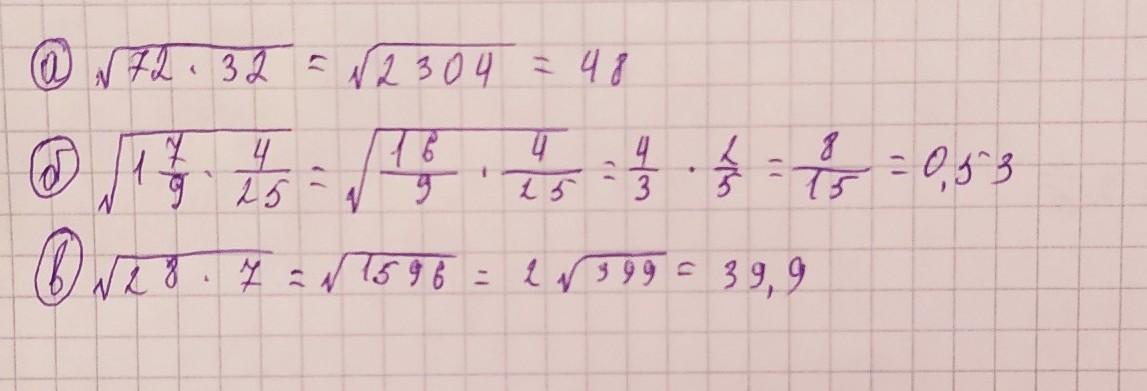 а) √72 · 32 = √2304 = 48
б) √1 7/9 · 4/25 = √16/9 · 4/25 = 4/3 · 2/5 = 8/15 = 0,53
в) √28 · 7 = √1596 = 2√399 = 39,9